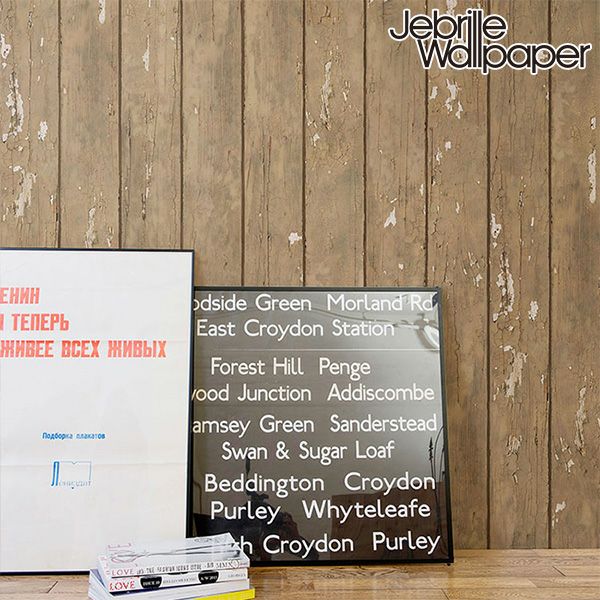 Jebrille
Wallpaper
ЕНИН
ТЕПЕРЬ
ЖИВЕЕ ВСЕХ ЖИВЫХ
Подборка плакатов
Лениздат
dside Green Morland Rd
East Croydon Station
Forest Hill Penge
wood Junction Addiscombe
amsey Green Sanderstead
Swan & Sugar Loaf
Beddington Croydon
Purley Whyteleafe
th Croydon Purley
LOVE
LOVE